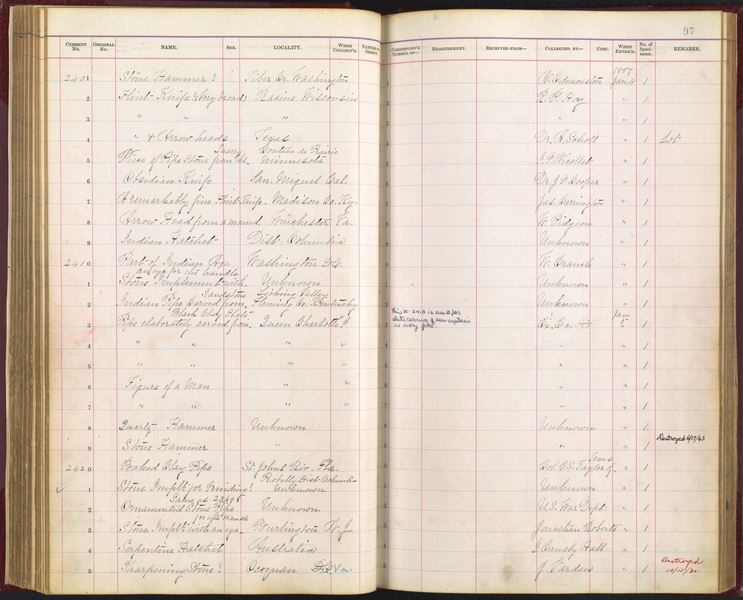 97
CURRENT No. ORIGINAL No. NAME. SEX. LOCALITY. WHEN COLLECT'D. NATURE OF OBJECT. CORRESPOND'G NUMBER OF— MEASUREMENT. RECEIVED FROM— COLLECTED BY— CONS. WHEN ENTER'D. No. of Specimens. REMARKS.
1867
2401 Stone Hammer? Tiber Cr. Washington 1 Edmonston Jan 4 1
2 Flint Knife? (Very broad) Racine Wisconsin 2 Hoy " 1
3 " " " 3 " " 1
4 " & Arrow heads Texas 4 Dr. A. Schott " 1 Lot
Quarry Couteau de Prairie
5 Piece of Pipe Stone from the Minnesota 5 Nicollet " 1
6 Obsidian Knife San Miguel Cal. 6 Dr J. G Cooper " 1
7 A remarkably fine Flint Knife Madison Co. Ky. 7 Jas. Carrington " 1
8 Arrow Head from a mound Winchester Va. 8 W. Pidgeon " 1
9 Indian Hatchet Dist. Columbia 9 Unknown " 1
2410 Part of Indian Axe Washington D.C. W. Cranch " 1
an eye for the handle
1 Stone Implement with Unknown 1 Unknown " 1
Sandstone Licking Valley
2 Indian Pipe Carved from Fleming Co. Kentucky 2 Unknown " 1
Black Clay Slate Jan
3 Pipe elaborately carved from Queen Charlotte's 3 This # 2413 is used for slate carving of sea captain w ivory face. Ex. Ex. 5 1
4 " " " 4 " " 1
5 " " " 5 " " 1
6 Figure of a Man " 6 " " 1
7 " " " 7 " " 1
8 Quartz Hammer Unknown 8 Unknown " 1
9 Stone Hammer " 9 " " 1 Destroyed 6/17/43
Texas
2420 Baked Clay Pipe St. Johns Riv. Fla. Col. Taylor of " 1
Probably Dist. Columbia
1 Stone Implt for Grinding? Unknown 1 Unknown " 1
Same as 23498
2 Ornamented Stone Pipe Unknown 2 U.S. War Dept. " 1
for axe handle
3 Stone Implt with an eye Burlington N. J. 3 Jonathan Roberts " 1
4 Serpentine Hatchet Australia 4 Ormsby Hall " 1
5 Sharpening Stone? Occoquan D.C. Va. 5 J Varden " 1 Destroyed